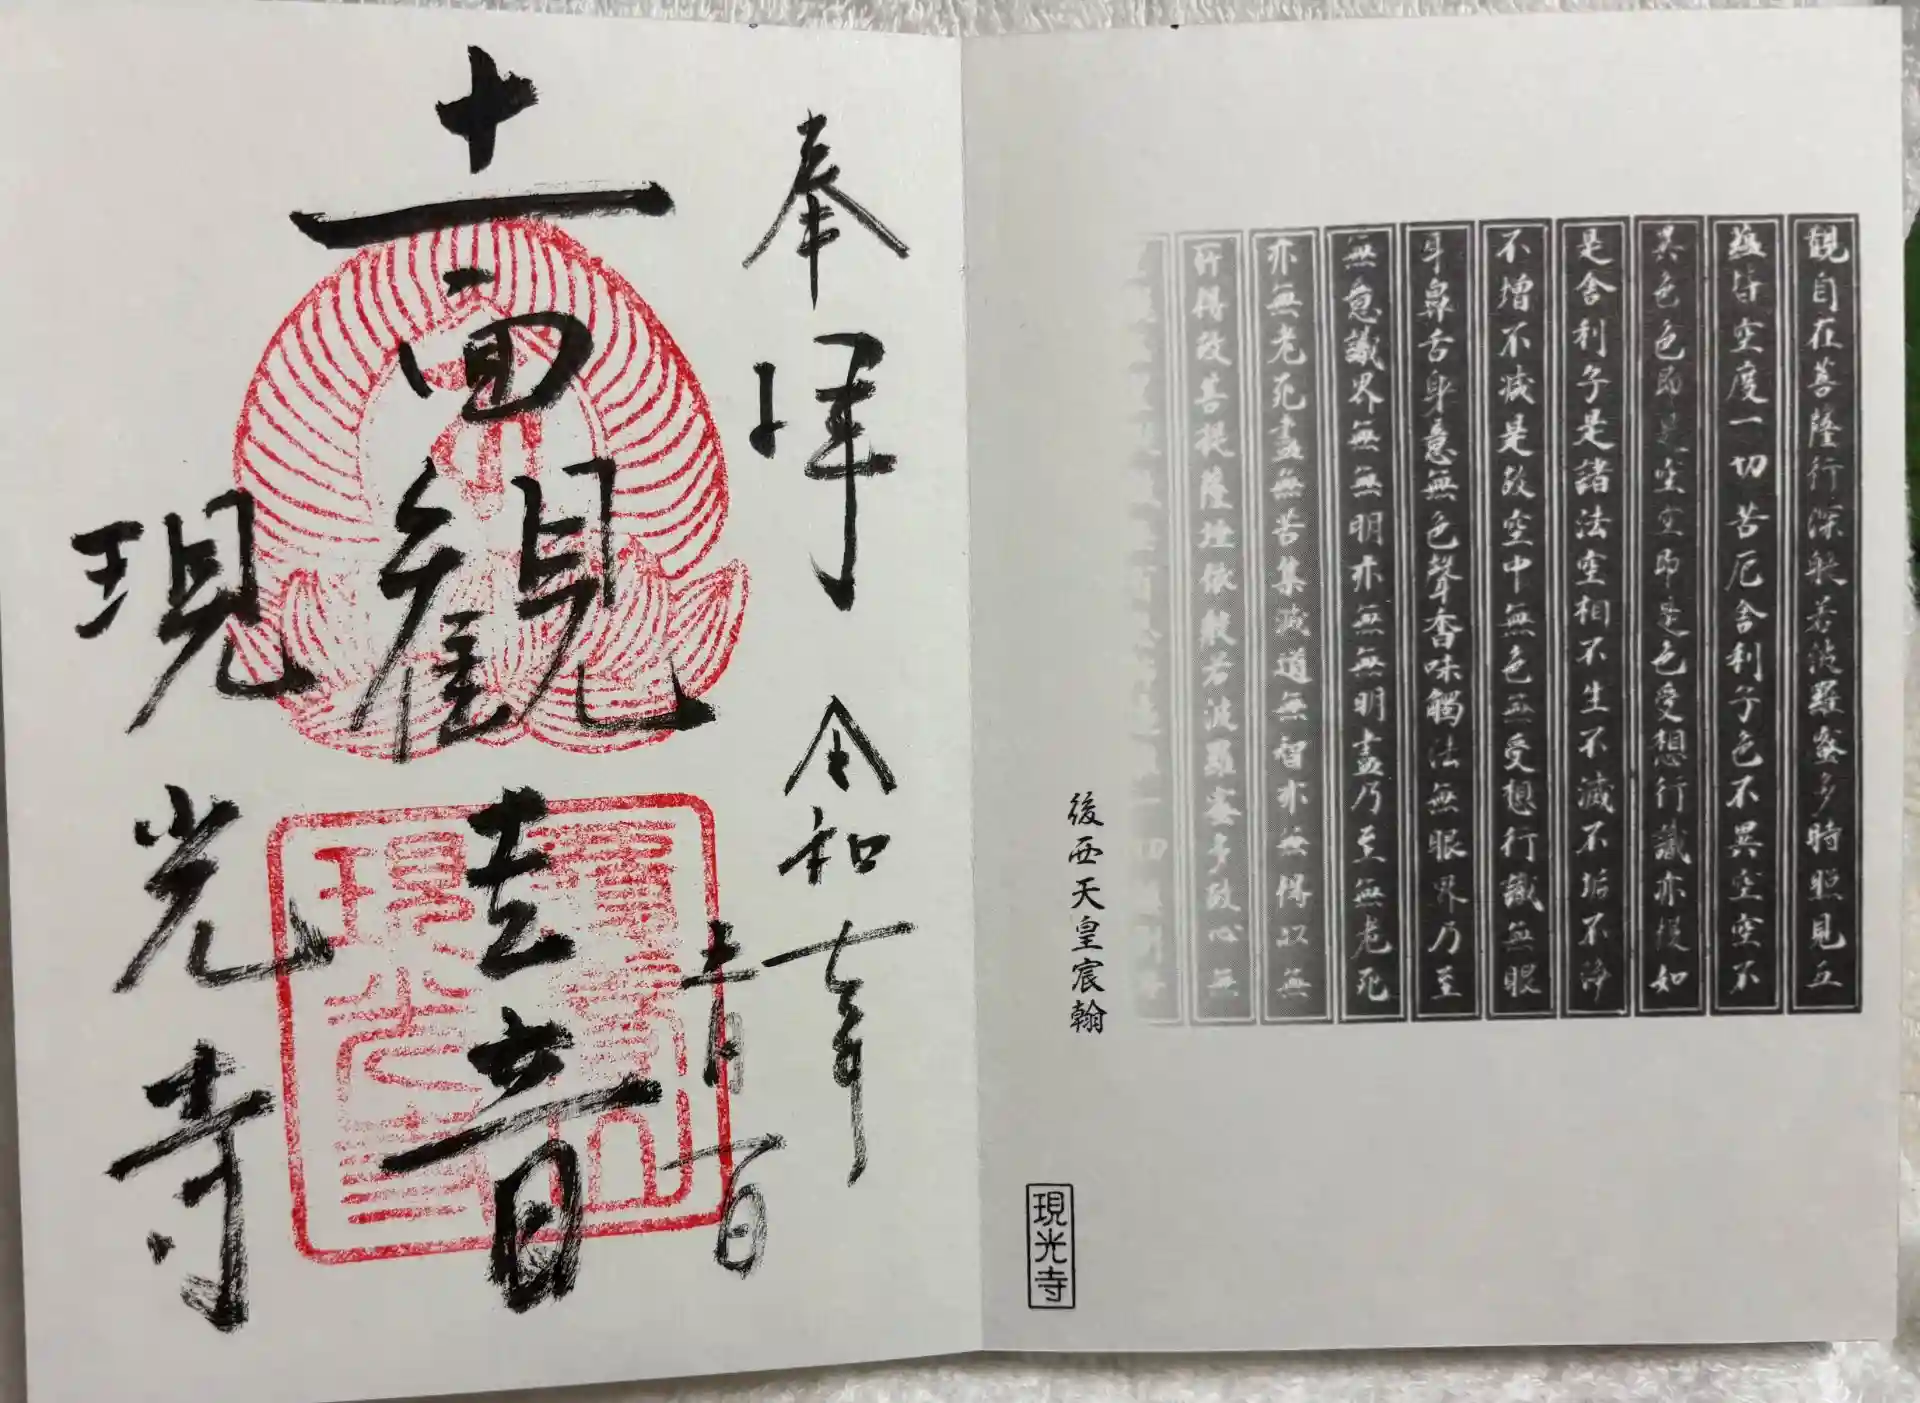 觀自在菩薩行深般若波羅蜜多時照見五
蘊皆空度一切苦厄舍利子色不異空空不
異色色即是空空即是色受想行識亦復如
是舍利子是諸法空相不生不滅不垢不淨
不增不減是故空中無色無受想行識無眼
耳鼻舌身意無色聲香味觸法無眼界乃至
無意識界無無明亦無無明盡乃至無老死
亦無老死盡無苦集滅道無智亦無得以無
所得故菩提薩埵依般若波羅蜜多故心無
後西天皇宸翰
現光寺
奉拝 令和七年
十一月
十一面観世音
現光寺
現光寺